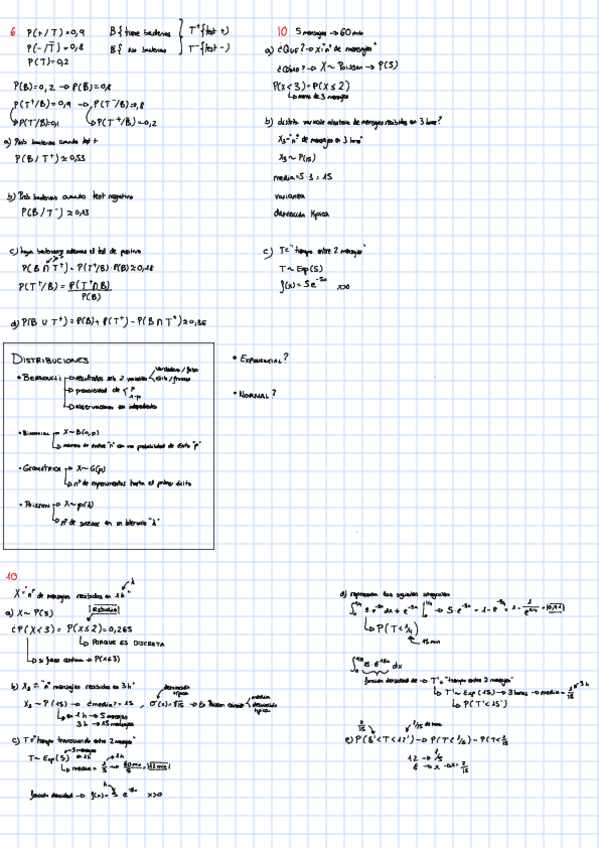 6 P(+/T)=0,9
P(-/T̄)=0,8
P(T)=0,2
B { tiene bacterias
B̄ { No bacterias
T⁺ {test +)
T⁻ {test -)
P(B)=0,2 → P(B̄)=0,8
P(T⁺/B)=0,9 → P(T⁻/B̄)=0,8
P(T⁻/B)=0,1 P(T⁺/B̄)=0,2
a) Prob bacterias cuando test +
P(B/T⁺) ≈ 0,53
b) Prob bacterias cuando test negativo
P(B/T⁻) ≈ 0,13
c) haya bacterias además el test de positivo
P(B ∩ T⁺) = P(T⁺/B) · P(B) ≈ 0,18
P(T⁺/B) = P(T⁺∩B) / P(B)
d) P(B ∪ T⁺) = P(B) + P(T⁺) - P(B ∩ T⁺) ≈ 0,36
10 5 mensajes → 60 min
a) ¿Que? → X="nº de mensajes"
¿Cómo? → X ~ Poisson → P(5)
P(X<3) = P(X≤2)
menos de 3 mensajes
b) distrib variable aleatoria de mensajes recibidos en 3 horas?
X₃="nº de mensajes en 3 horas"
X₃ ~ P(15)
media = 5·3 = 15
varianza
desviación típica
c) T="tiempo entre 2 mensajes"
T ~ Exp(5)
f(x) = 5e⁻⁵ˣ x>0
DISTRIBUCIONES
• BERNOULLI → resultados solo 2 variables verdadero / falso éxito / fracaso
→ probabilidad de p 1-p
→ observaciones son independientes
• BINOMIAL → X~B(n,p)
número de éxitos "n" con una probabilidad de éxito "p"
• GEOMÉTRICA → X~G(p)
nº de experimentos hasta el primer éxito
• POISSON → X~P(λ)
nº de sucesos en un intervalo "λ"
• EXPONENCIAL?
• NORMAL?
10
X="nº de mensajes recibidos en 1h" λ
a) X ~ P(5) Estudio
¿P(X<3) = P(X≤2) = 0,265
PORQUE ES DISCRETA
si fuese continua → P(X≤3)
b) X₃ = "nº mensajes recibidos en 3h"
X₃ ~ P(15) → ¿media? = 15, σ(x) = √15 → En Poisson media desviación típica
en 1h → 5 mensajes
3h → 15 mensajes
c) T="tiempo transcurrido entre 2 mensajes"
T ~ Exp(5) 5 mensajes en 1h
media = 1/5 → 60 min/5 = 12 min
función densidad → f(x) = 5 e⁻⁵ˣ x>0
d) representan las siguientes integrales
→ P(T<1/4)
15 min
función densidad de → T'="tiempo entre 2 mensajes"
T' ~ Exp(15) → 3 horas → media = 1/15 3h
P(T'<15')
e) P(8'<T<12') → P(T<1/5) - P(T<2/15
12 → 1/5
8 → x → x = 2/15